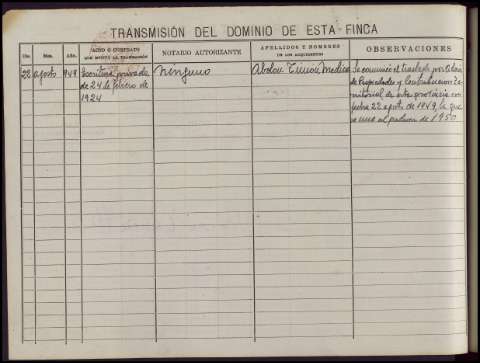 TRANSMISIÓN DEL DOMINIO DE ESTA FINCA
Día. Mes. Año. ACTO O CONTRATO NOTARIO AUTORIZANTE APELLIDOS Y NOMBRES OBSERVACIONES
QUE MOTIVA LA TRANSMISIÓN DE LOS ADQUIRENTES
22 agosto 949 Escritura privada ninguno Medica Se comunicó el traslado por
de 24 de febrero de de Propiedades y Contribucion Te-
1924 rritorial de esta provincia con
fecha 22 agosto de 1949, lo que
se une al padron de 1950